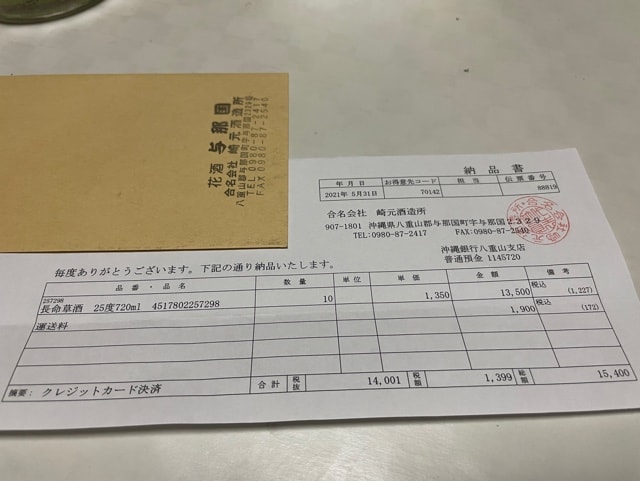 花酒 与那国
合名会社 崎元酒造所
八重山郡与那国町字与那国2329番
TEL0980-87-2417
FAX0980-87-2540
納品書
年月日 お得意先コード 担当 伝票番号
2021年 5月31日 70142 88819
合名会社 崎元酒造所
907-1801 沖縄県八重山郡与那国町字与那国2329
TEL:0980-87-2417 FAX:0980-87-2540
沖縄銀行八重山支店
普通預金 1145720
毎度ありがとうございます。下記の通り納品いたします。
品番・品名 数量 単位 単価 金額 備考
257298
長命草酒 25度720ml 4517802257298 10 1,350 13,500 税込 (1,227)
運送料 1,900 税込 (172)
摘要: クレジットカード決済 合計 税抜 14,001 税額 1,399 総額 15,400